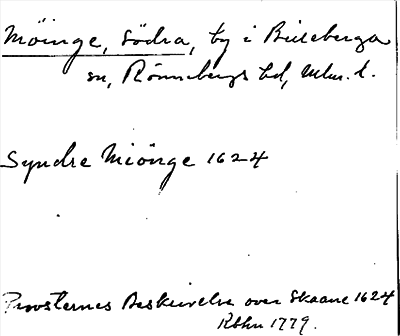 Möinge, Södra, by i Billeberga
sn, Rönnebergs hd, Mlm. l.
Syndre Miönge 1624
Provsternes Beskrivelse over Skaane 1624
Kbhn 1779.